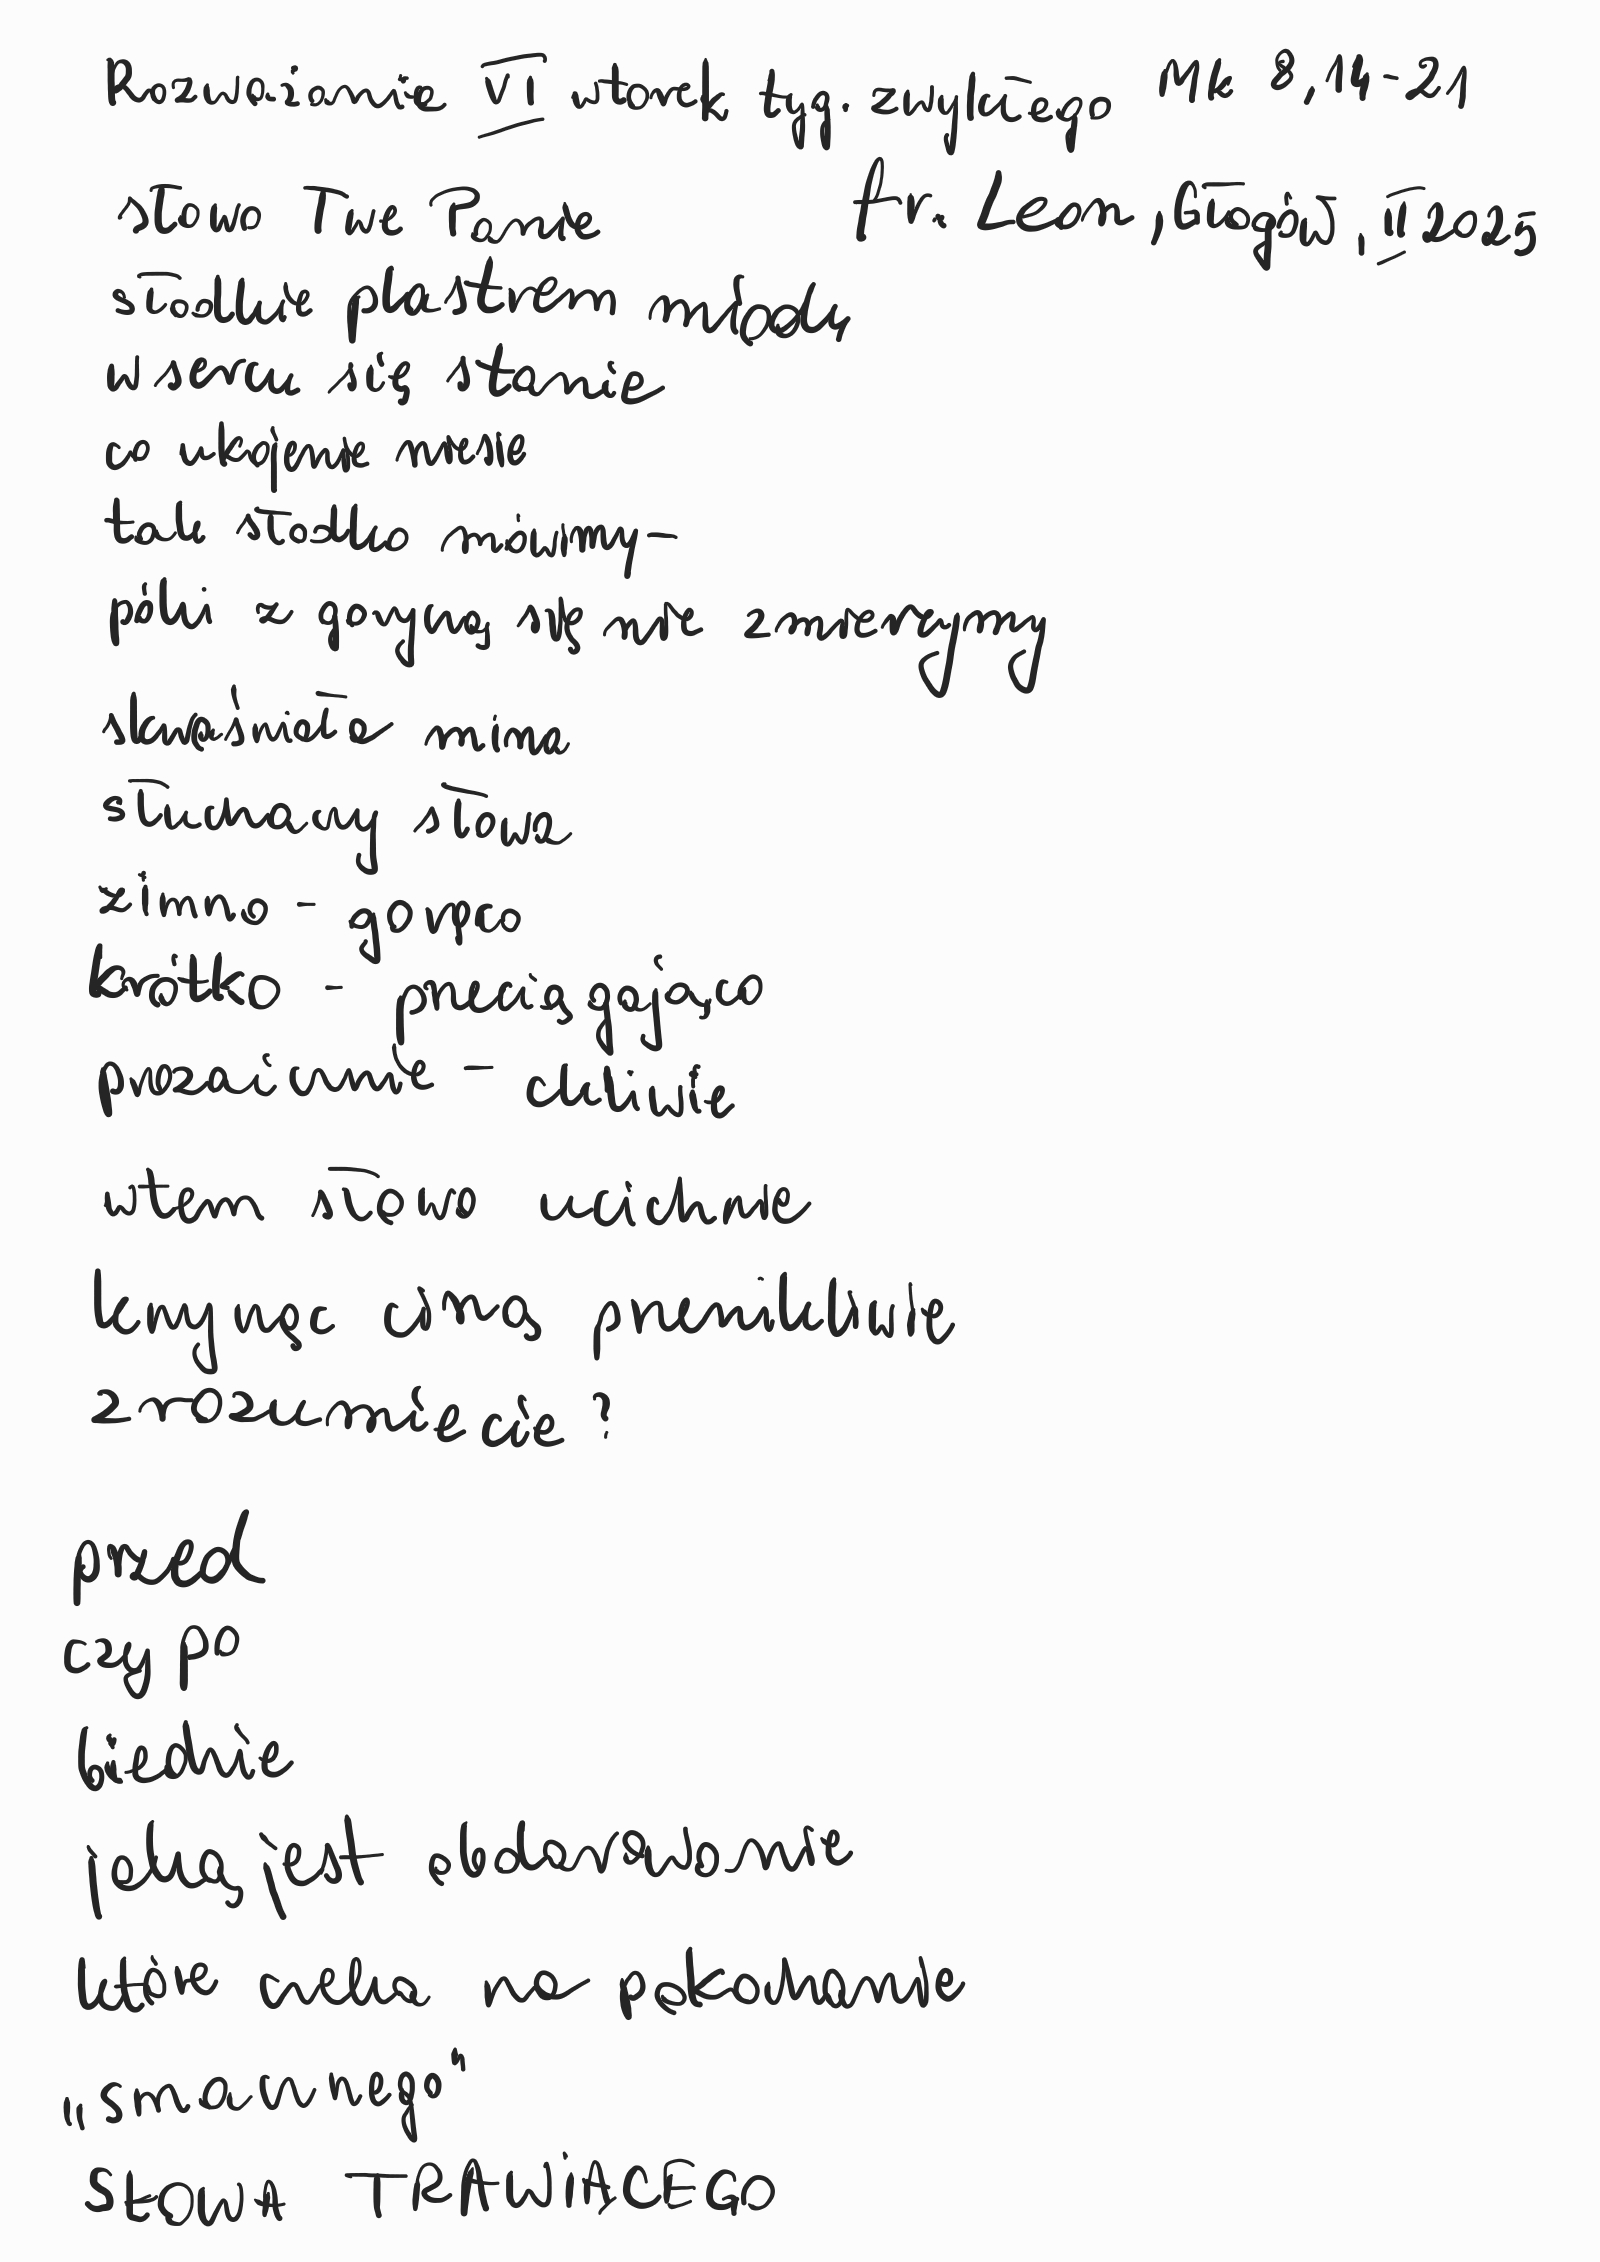 Rozważanie VI wtorek tyg. zwykłego Mk 8,14-21
słowo Twe Panie fr. Leon, Głogów, II 2025
słodkie plastrem miodu
w sercu się stanie
co ukojenie niesie
tak słodko mówimy -
póki z goryczą się nie zmierzymy
skwaśniała mina
słuchaczy słowa
zimno - gorąco
krótko - przeciągająco
prozaicznie - ckliwie
wtem słowo ucichnie
krzycząc ciszą przenikliwie
zrozumiecie?
przed
czy po
biednie
jaką jest obdarowanie
które czeka na pokochanie
„smacznego"
SŁOWA TRAWIĄCEGO